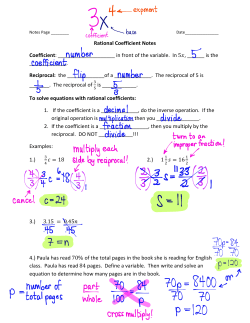 3x⁴ ← exponent
coefficient base
Notes Page ______ Date______
Rational Coefficient Notes
Coefficient: number in front of the variable. In 5x, 5 is the
coefficient.
Reciprocal: the flip of a number. The reciprocal of 5 is
1/5. The reciprocal of is 5/3.
To solve equations with rational coefficients:
1. If the coefficient is a decimal, do the inverse operation. If the
original operation is multiplication then you divide.
2. If the coefficient is a fraction, then you multiply by the
reciprocal. DO NOT divide!!!
turn to an improper fraction!
Examples:
multiply each side by reciprocal!
1.) 3/4 c = 18
2.) 1 1/2 s = 16 1/2
cancel c=24
S = 11
3.) 3.15 = 0.45n
45 45
7 = n
4.) Paula has read 70% of the total pages in the book she is reading for English
class. Paula has read 84 pages. Define a variable. Then write and solve an
equation to determine how many pages are in the book.
70p=84
p=120
p = number of total pages
part 70 84
whole 100 p
cross multiply!
70p = 8400
70 70
p = 120